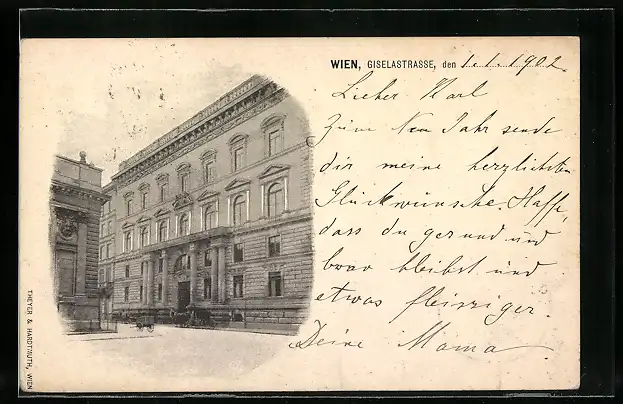 WIEN, GISELASTRASSE, den 1.1.1902.
Lieber Karl
Zum Neu Jahr sende
dir meine herzlichsten
Glückwünsche. Hoffe,
dass du gesund und
brav bleibst und
etwas fleissiger.
Deine Mama
THEYER & HARDTMUTH, WIEN